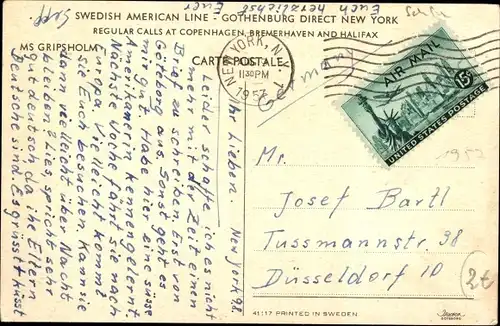 SWEDISH AMERICAN LINE - GOTHENBURG DIRECT NEW YORK
REGULAR CALLS AT COPENHAGEN, BREMERHAVEN AND HALIFAX
MS GRIPSHOLM
CARTE POSTALE
NEW YORK, N.Y.
1130PM
1957
AIR MAIL
15¢
UNITED STATES POSTAGE
Germany
1957
New York 9.8.
Ihr Lieben.
Leider schaffte ich es nicht
mehr mit der Zeit einen
Brief zu schreiben. Erst von
Göteborg aus. Sonst geht es
mir gut. Habe hier eine süsse
Amerikanerin kennengelernt.
Nächste Woche fährt sie nach
Europa. Vielleicht kommt
sie Euch besuchen. Kann sie
dann vielleicht über Nacht
bleiben? Sie spricht sehr
gut deutsch da ihre Eltern
Deutsche sind. Es grüsst küsst
Euch herzlichst
Euer
Sepp
Mr.
Josef Bartl
Tussmannstr. 38
Düsseldorf 10
2€
41117 PRINTED IN SWEDEN